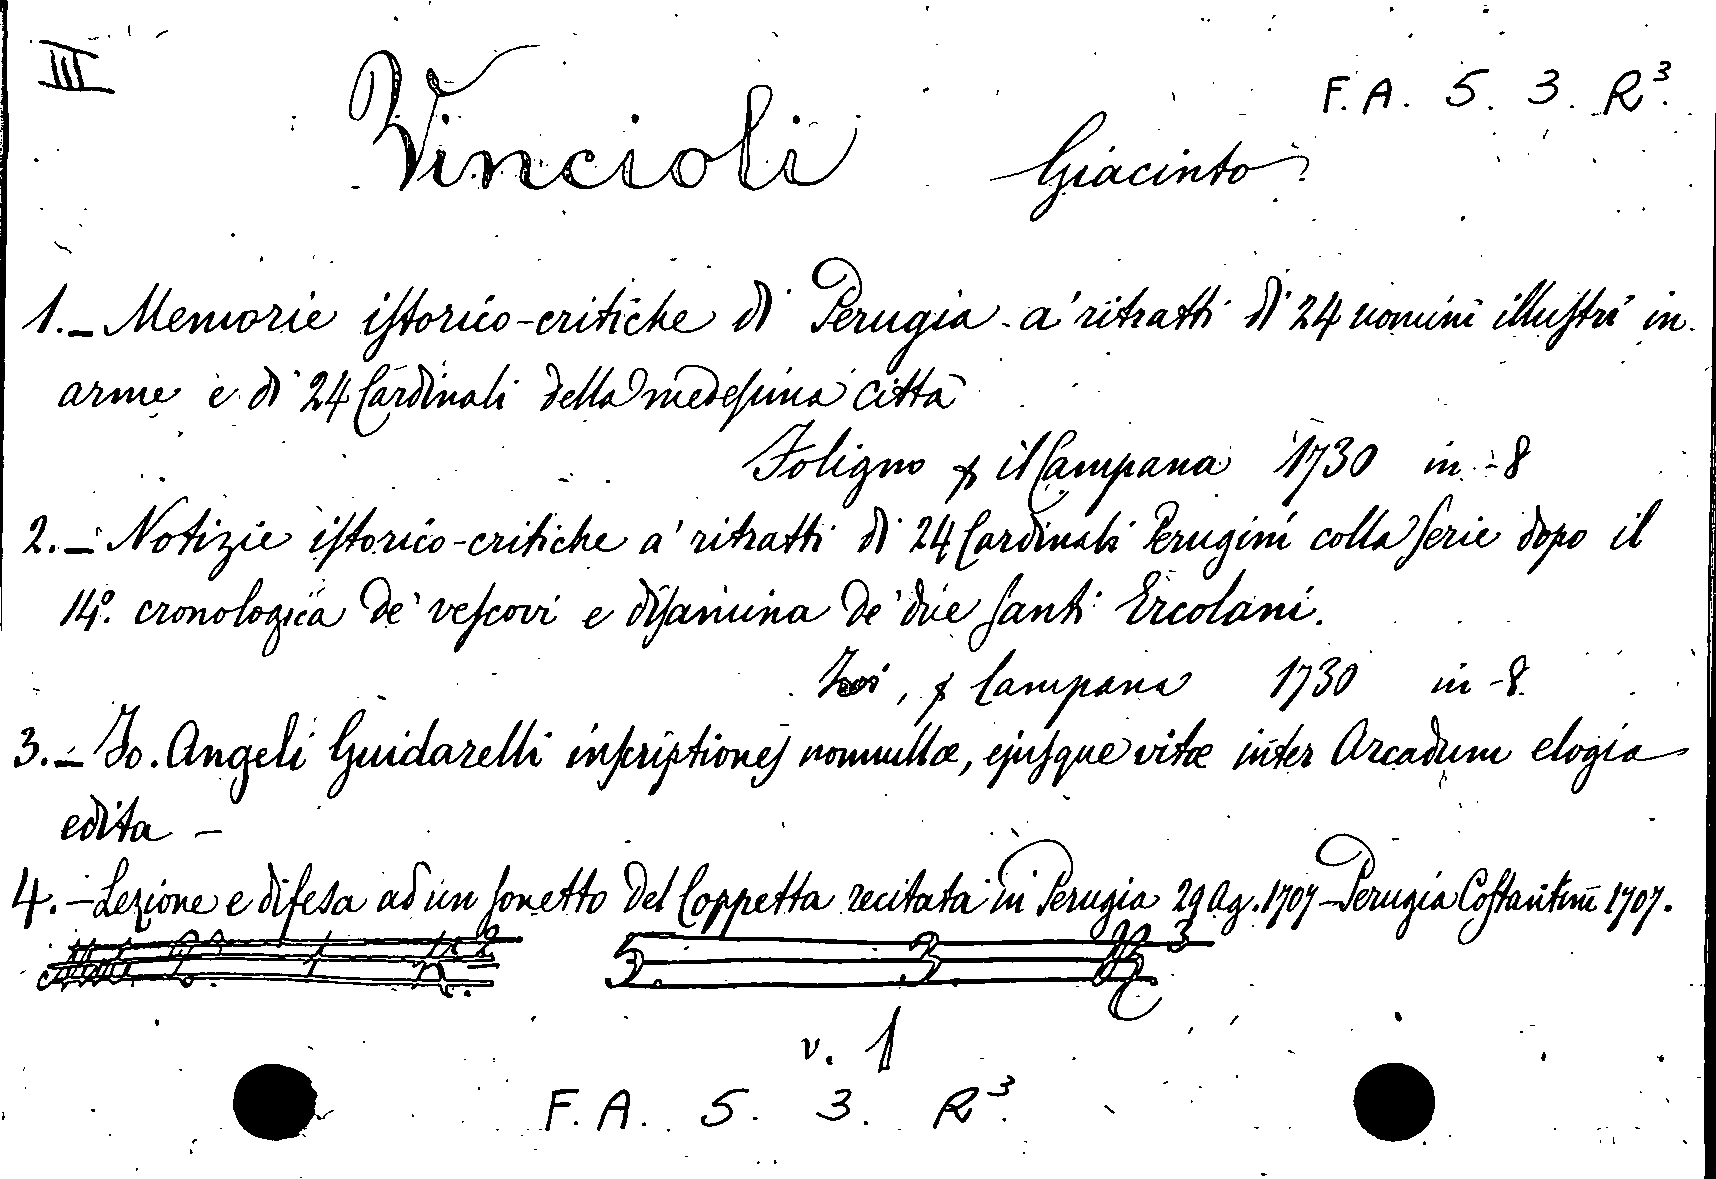 III
F. A. 5. 3. R³.
Vincioli Giacinto
1. – Memorie istorico-critiche di Perugia a' ritratti di 24 uomini illustri in
arme e di 24 Cardinali della medesima città
Foligno p il Campana 1730 in-8
2. – Notizie istorico-critiche a' ritratti di 24 Cardinali Perugini colla serie dopo il
14º. cronologica de' vescovi e disamina de' due Santi Ercolani.
Ivi, p Campana 1730 in-8.
3. – Jo. Angeli Guidarelli inscriptiones nonnullæ, ejusque vitæ inter Arcadum elogia
edita –
4. – Lezione e difesa ad un sonetto del Coppetta recitata in Perugia 29 Ag. 1707 – Perugia Costantini 1707.
5. 3. R³
v. 1
F. A. 5. 3. R³.